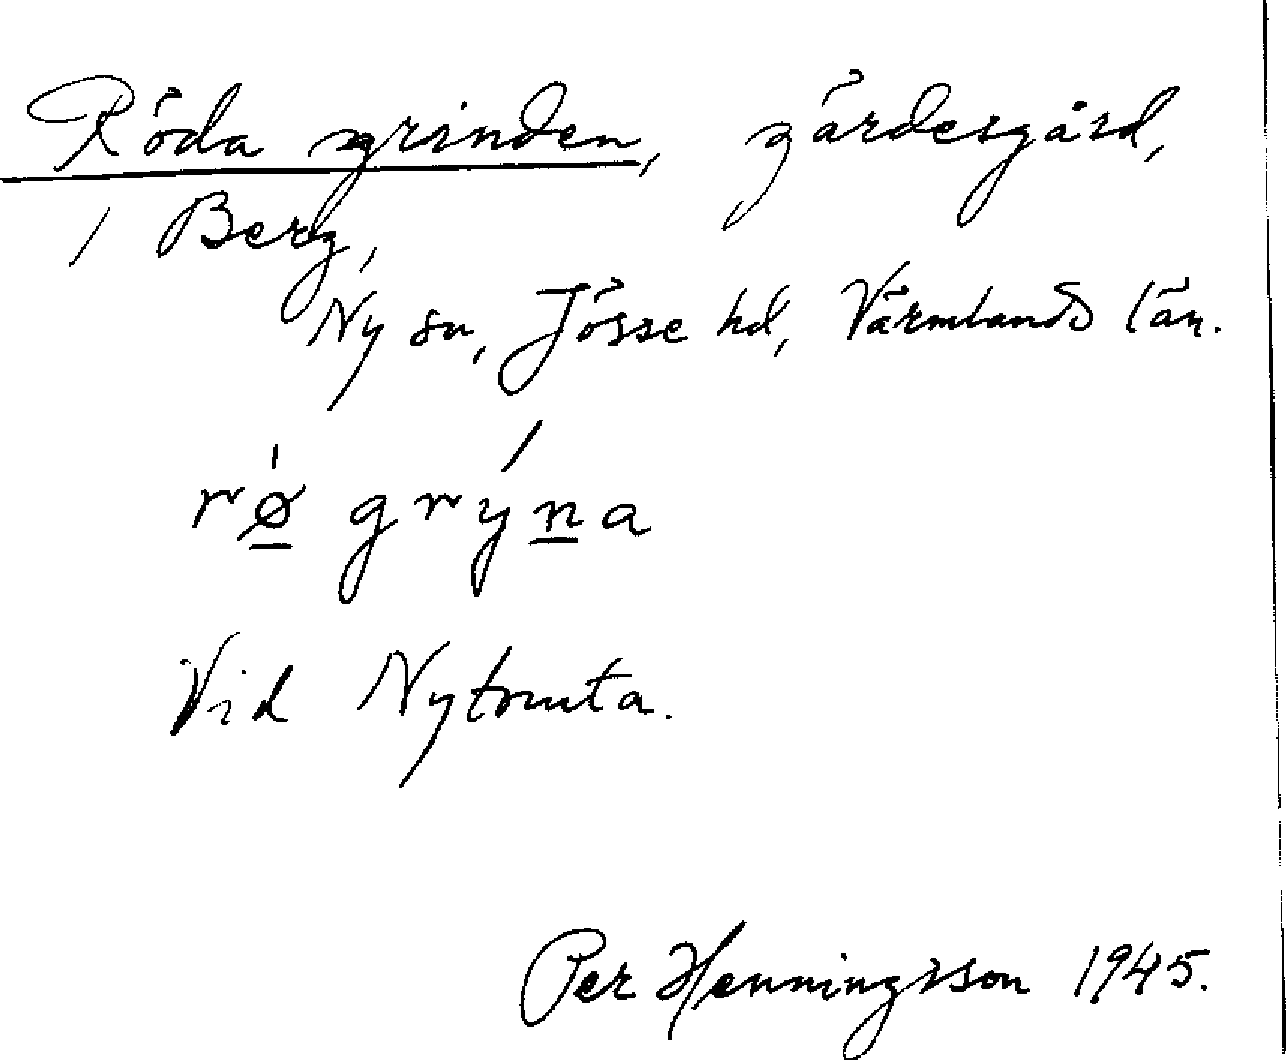 Röda grinden, gärdesgård,
i Berg,
Ny sn, Jösse hd, Värmlands län.
rǿ̲ grýn̲a
Vid Nytomta.
Per Henningsson 1945.